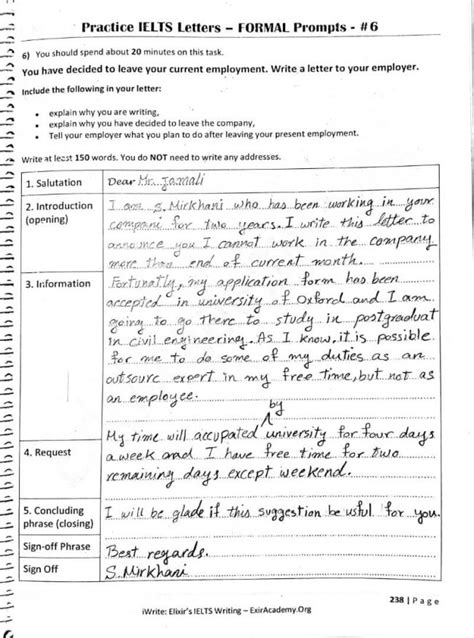 Practice IELTS Letters – FORMAL Prompts - #6
6) You should spend about 20 minutes on this task.
You have decided to leave your current employment. Write a letter to your employer.
Include the following in your letter:
• explain why you are writing,
• explain why you have decided to leave the company,
• Tell your employer what you plan to do after leaving your present employment.
Write at least 150 words. You do NOT need to write any addresses.
1. Salutation
Dear Mr. Jamali
2. Introduction
(opening)
I am S. Mirkhani who has been working in your
compani for two years. I write this letter to
announce you I cannot work in the company
more than end of current month.
3. Information
Fortunatly, my application form has been
accepted in university of Oxford and I am
going to go there to study in postgraduat
in civil engineering. As I know, it is possible
for me to do some of my duties as an
outsourc expert in my free time, but not as
an employee.
4. Request
by
My time will accupated university for four days
a week and I have free time for two
remaining days except weekend.
5. Concluding
phrase (closing)
I will be glade if this suggestion be usful for you.
Sign-off Phrase
Best regards.
Sign Off
S. Mirkhani
238 | Page
iWrite: Elixir's IELTS Writing – ExirAcademy.Org